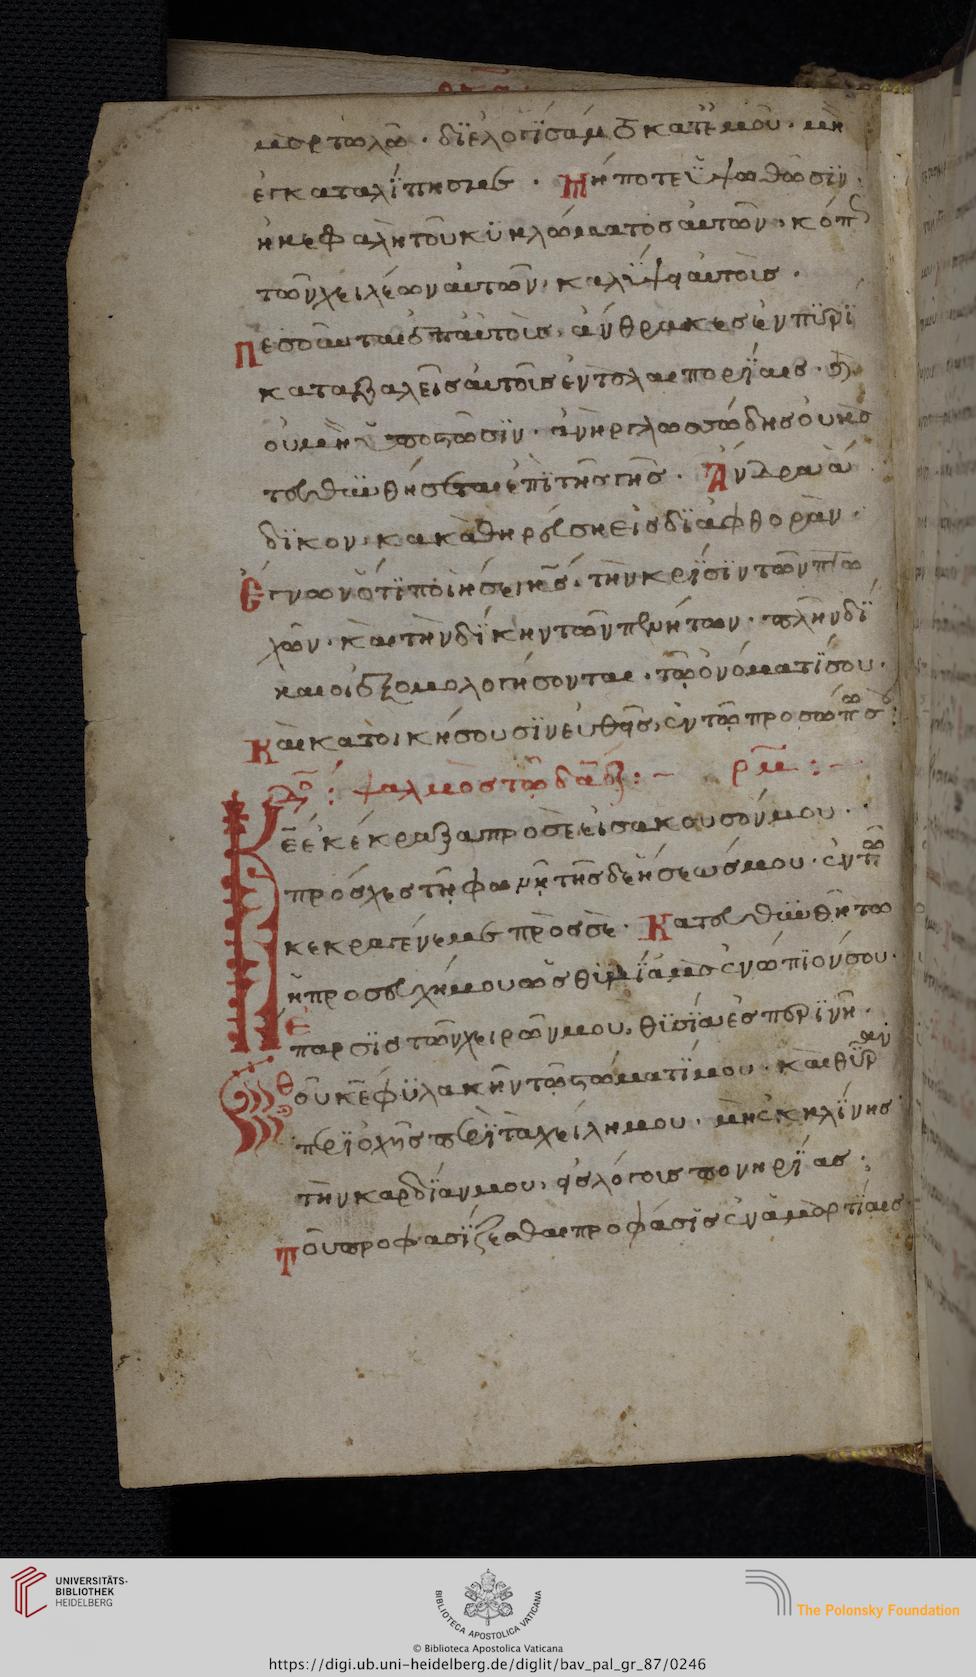 μαρτωλῶ · διελογίσαν κατ' ἐμοῦ · μὴ
ἐγκαταλίπης με · Μή ποτε ὑψωθῶσιν ·
ἡ κεφαλὴ τοῦ κυκλώματος αὐτῶν · κόπος
τῶν χειλέων αὐτῶν · καλύψει αὐτοὶς ·
Πεσοῦνται ἐπ' αὐτοὶς ἄνθρακες ἐν πϋρὶ
καταβαλεῖς αὐτοῖς ἐν ταλαιπορίαις ·
οὐ μὴ ὑποστῶσιν · ἀνὴρ γλωσσώδης οὐ κα
τευθϋνθήσεται ἐπὶ τῆς γῆς · Ἄνδρα ἄ
δικον κακὰ θηρεύσει εἰς διαφθορὰν ·
Ἔγνων ὅτι ποιήσει κ̅ς̅ · τὴν κρίσιν τῶν πτω
χῶν · καὶ τὴν δίκην τῶν πενήτων · πλὴν δί
καιοι ἐξομολογήσονται · τῶ ὀνόματί σου ·
Καὶ κατοικήσουσιν εὐθεῖς ἐν τῶ προσώπω σου :
ψαλμὸς τῶ δα̅δ̅ : – ρ̅μ̅ : –
Κ̅ε̅ ἐκέκραξα πρὸς σὲ εἰσάκουσόν μου ·
πρόσχες τῆ φωνῆ τῆς δεήσεώς μου · ἐν τῶ
κεκραγέναι με πρὸς σὲ · Κατευθϋνθήτω
ἡ προσευχή μου ὡς θϋμίαμα ἐνώπιόν σου ·
Ἔπαρσις τῶν χειρῶν μου, θϋσία ἑσπερινή ·
Θοῦ κ̅ε̅ φϋλακὴν τῶ στώματί μου · καὶ θύραν
περιοχῆς περὶ τὰ χείλη μου · μὴ ἐκκλίνης
τὴν καρδίαν μου, εἰς λόγοις πονηρίας ·
Τοῦ προφασίζεσθαι προφάσις ἐν ἁμαρτίαις
UNIVERSITÄTS-
BIBLIOTHEK
HEIDELBERG
BIBLIOTECA APOSTOLICA VATICANA
The Polonsky Foundation
© Biblioteca Apostolica Vaticana
https://digi.ub.uni-heidelberg.de/diglit/bav_pal_gr_87/0246